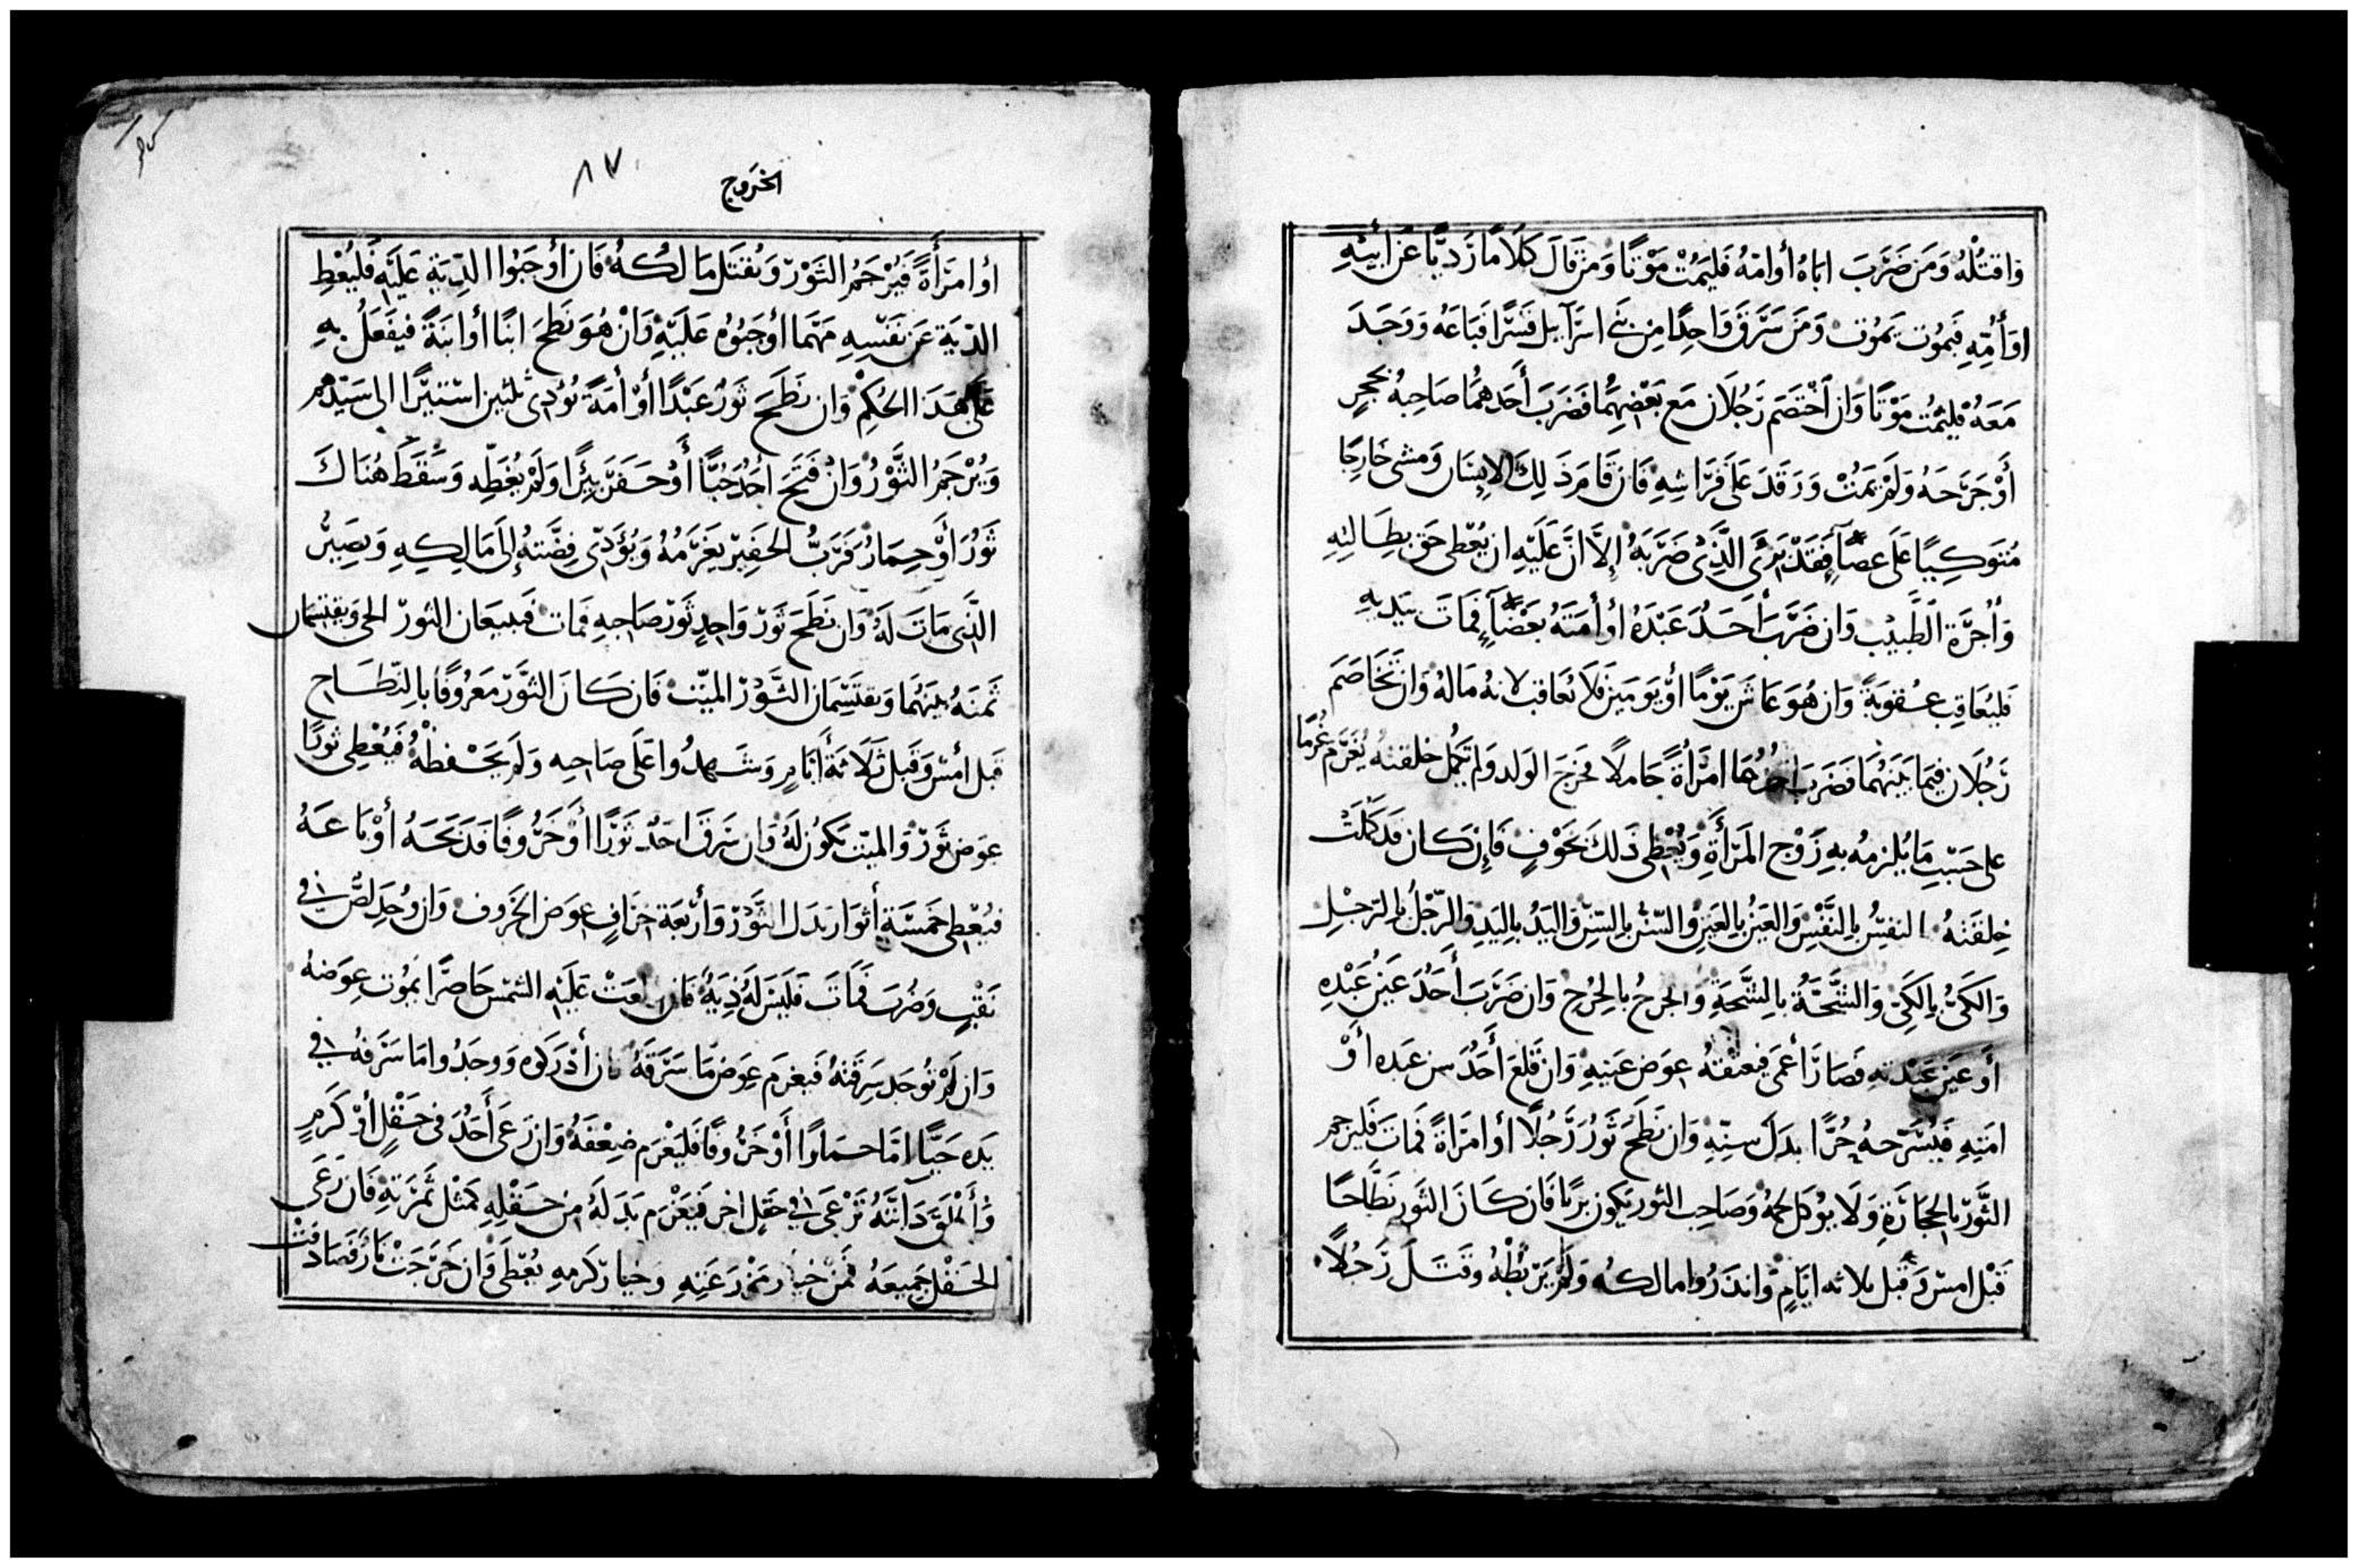 واقتلهُ وَمَن ضَرَبَ اباهُ أوامّهُ فليمُتْ مَوْتًا وَمَن قالَ كَلَامًا رَديًّا عَن أبيْهِ
اوَأُمِّهِ فيمُوت يَمُوت وَمَن سَرَقَ وَاحِدًا مِن بَني اسرآييل قسرًا فبَاعَهُ وَوَجَدَ
مَعَهُ فليَمُت مَوْتًا وَان اخْتَصَم رَجُلَان مَع بَعْضِهُما فضَرَبَ أَحَدهُمَا صَاحِبهُ بحَجرٍ
أَوْ جَرَحَهُ وَلَمْ يمَتْ وَرَقدَ عَلَى فرَاشِهِ فَان قَامَ ذَلِكَ الانسَان وَمشى خَارجًا
مُتوَكِيًا عَلَى عصًا فقَدْ بَرئَ الَّذِي ضَرَبَهُ إلَّا انَّ عَلَيْهِ ان يُعْطى حَق بطَالتهِ
وَأُجرَة الطَبيْب وَان ضَرَبَ أَحَدُ عَبْدَهُ أوْ أمَتَهُ بعَصًا فمَاتَ بيَدِيهِ
فليُعَاقب عقوبَةً وَان هُوَ عَاشَ يَوْمًا أوْ يَومَين فلَا يُعَاقب لانهُ مَالهُ وَان تَخَاصَم
رَجُلَان فيمَا بَينَهُمَا فضَرَبَ احدهُمَا امرَأَةً حَاملًا فخرَجَ الولد وَلم تكمل خلقتهُ يُغَرَّم غُرمًا
على حَسَب مَا يُلزمهُ بهِ زَوْج المَرأَةِ وَيُعْطى ذَلكَ بخَوْفٍ فَإن كَان قد كَمَلَتْ
خِلقتهُ النفسُ بالنَّفسِ وَالعَينُ بالعَينِ وَالسّنّ بالسّنّ وَاليَدُ باليَدِ وَالرّجْلُ بالرّجلِ
وَالكَىّ بالكَىّ وَالشَّجَّةُ بالشَّجَةِ وَالجرحُ بالجُرحِ وَان ضَرَبَ أَحَدُ عَينُ عَبْدِهِ
أَو عَينَ عَبْدتهِ فصَارَا أعمَى فيعتقهُ عوَض عَينيهِ وَان قلعَ أَحَدُ سن عَبده أوْ
امَتِهِ فيُسَرّحهُ حُرًّا بدَلَ سنِّهِ وَان نَطَحَ ثَورُ رَجُلًا أو امرَاةً فمَاتَ فَليرجم
الثَّوْر بالحجَارَةِ وَلَا يوكل لحمهُ وَصَاحِب الثور يَكون بريًا فَان كَانَ الثَور نَطَّاحًا
قَبْل امسْ وَقبل ثلاثه ايَامٍ وَانذَرُوا مالكهُ وَلَمْ يَرْبطْهُ وقَتَلَ رَجُلًا
الخرَوج
٨٧
أو امرَأَةً فيُرْجَمُ الثَوْر وَيُقتَل مَالكهُ فَان أوجَبُوا الدّيَة عَليَهِ فَليُعْطِ
الدّيَة عَن نَفسِهِ مَهْمَا أوجَبُوهُ عَلَيْهِ وَانْ هُوَ نَطَحَ ابنًا أوابنَةً فيفعَلُ بهِ
عَلى هَذَا الحُكمْ وَان نَطَحَ ثَورُ عَبْدًا أوْ أمَةً يُؤدى ثلثين استيرًا الى سَيّدهم
وَيُرْجَمُ الثَّوْرُ وَانْ فَتَحَ أحُدُ جُبًّا أَوْ حَفَرَ بيئرًا وَلَمْ يُغَطّهِ وَسَقَطَ هُنَاكَ
ثَوُرُ أَوْ حِمَارُ فَرَبُّ الحَفير يغرَمُهُ وَيُؤَدّى فِضَّتهُ إلَى مَالِكِهِ وَيصِيرُ
الذَى مَاتَ لَهُ وَان نَطَحَ ثَوْر وَاحِدٍ ثَوْر صَاحِبهِ فمَات فَيبيعَان الثور الحى وَيقتسمَان
ثَمنَهُ بينَهُمَا وَيقتسّمَان الثَّوْرَ الميّت فَان كَانَ الثَّوْرَ مَعرُوفًا بالنّطَاح
قَبل أمسْ وَقَبل ثَلَاثةَ أَيَامٍ وَشَهدُوا عَلَى صَاحبه وَلَم يَحْفظْهُ فَيُعْطِى ثورًا
عِوَض ثَوْرٍ وَالميّت يَكُون لَهُ وَان سَرَقَ احَدُ ثَوْرًا أَوْ خَرُوفًا فَذَبَحَهُ أوْبَاعَهُ
فيُعْطى خَمسَة أثوَار بَدَل الثَوْر وَأرْبَعَة خرَافٍ عِوَض الخَروف وَان وُجَد لِصُّ في
نَقْبٍ وَضُربَ فمَاتَ فَلَيسَ لَهُ دِيَةُ فَان طلعَتْ عَلَيْهِ الشمس حَاضرًا يَمُوت عِوَضهُ
وَان لَمْ تُوجَد سَرقتهُ فيغرَم عِوَض مَا سَرَقَهُ فان أدْرَكوه وَوجَدُوا مَا سَرقهُ في
يَده حَيًّا امَّا حمَارًا أَوْ خَرُوفًا فَليَغْرَم ضِعْفَهُ وَان رَعَى أَحَدُ في حَقْلٍ أوْ كَرْمٍ
وَأطْلقَ دَابتَهُ تَرْعَى في حَقلِ اخر فَيَغْرَم بَدَلهُ مِن حَقْلِهِ كمثل ثمَرَتهِ فَان رَعَى
الحَقْل جَميعَهُ فَمن خيار مَزرَعَتِهِ وَخيَار كَرمهِ يُعْطَى وَان خَرَجَتْ نَارُ فصَادفتْ